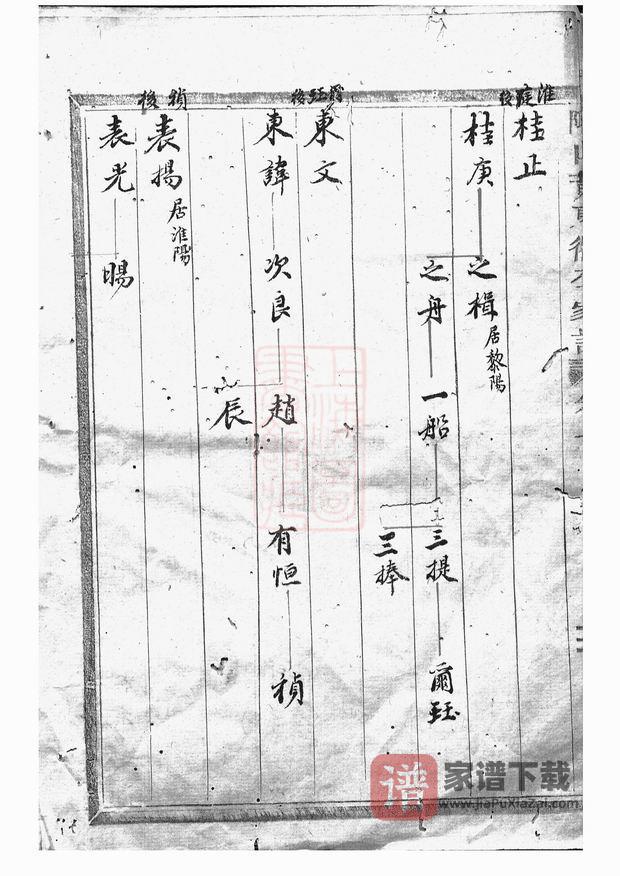 淮庭後
桂止
桂庚
之楫 居黎陽
之舟 一船 三提 爾珏
三捧
爾珏後
東文
東諱 次良 趙 有恒 禎
辰
禎後
表揚 居淮陽
表光 暘
谱 家谱下载
www.jiaPuXiazai.com